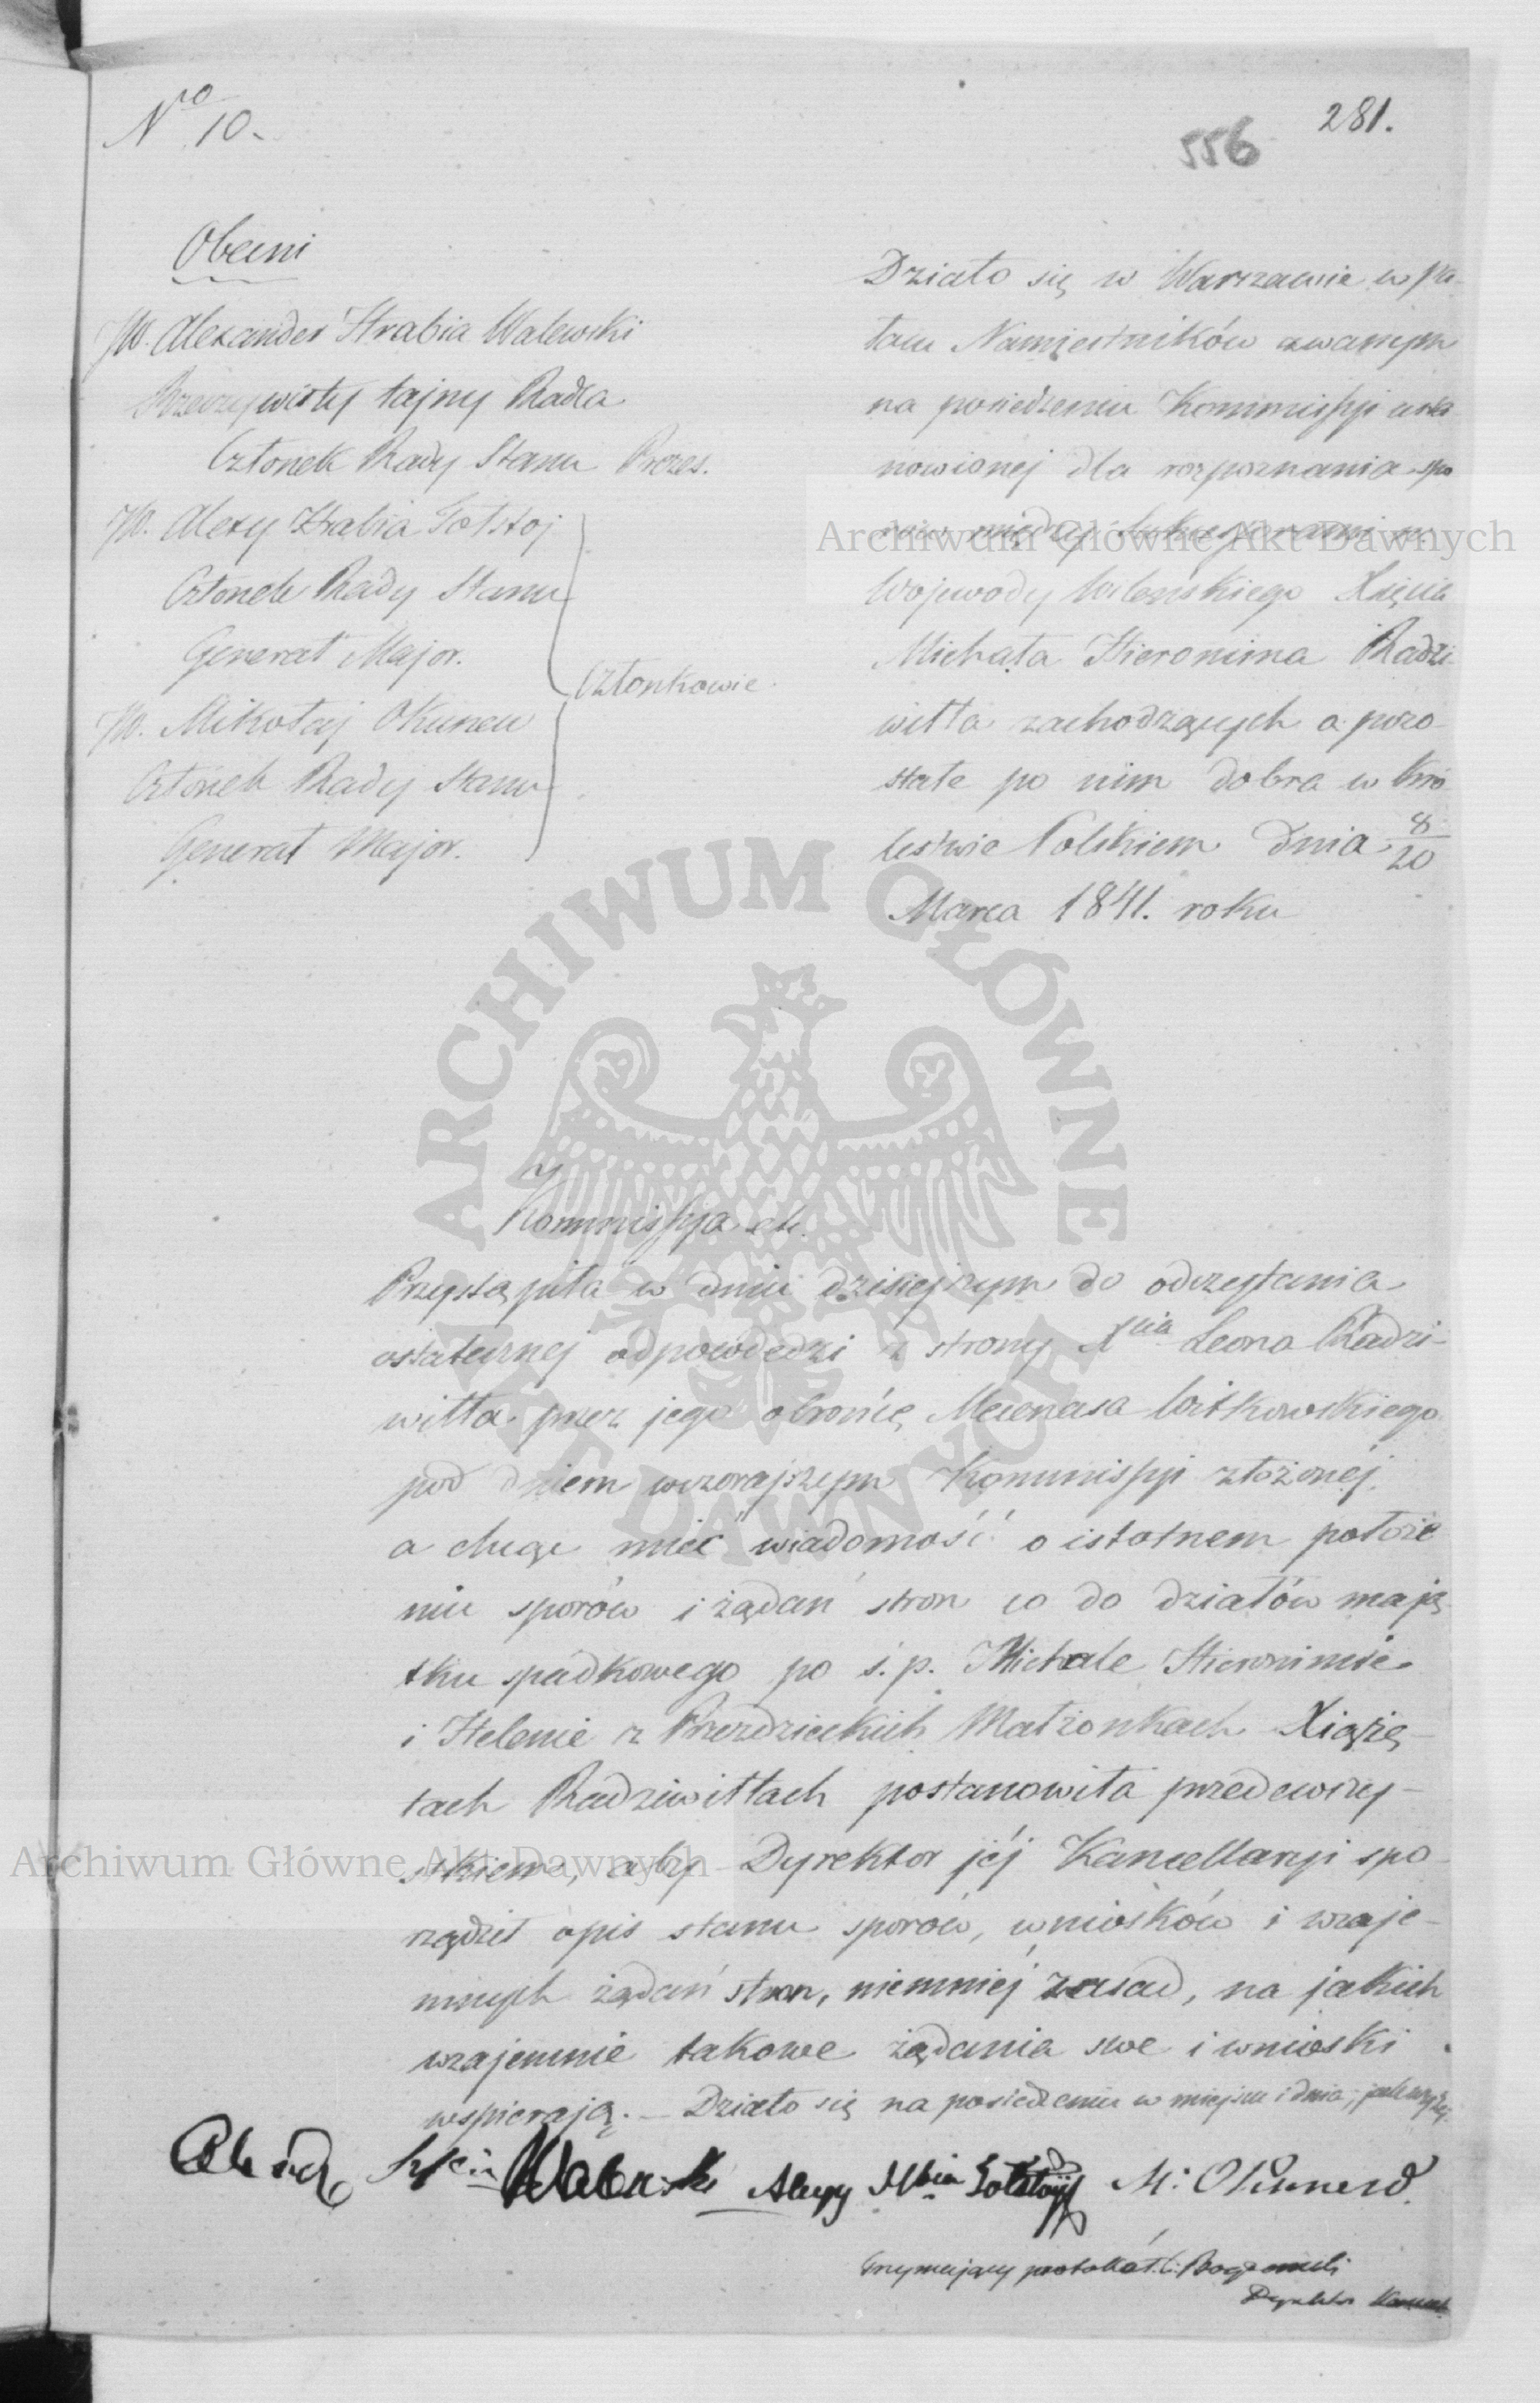 No 10.
281.
556
Obecni
JW. Alexander Hrabia Walewski
Rzeczywisty tajny Radca
Członek Rady Stanu Prezes.
JW. Alexy Hrabia Tołstoj
Członek Rady Stanu
Generał Major.
Członkowie.
JW. Mikołaj Okuneu
Członek Rady Stanu
Generał Major.
Działo się w Warszawie w pa-
łacu Namiestników zwanym
na posiedzeniu Kommissyi usta
nowionej dla rozpoznania spo
rów między Sukcesorami n.
Wojewody Wileńskiego Xięcia
Michała Hieronima Radzi
wiłła zachodzących o pozo-
stałe po nim dobra w Kró
lestwie Polskiem dnia 8/20
Marca 1841. roku
Kommissya etc.
Przystąpiła w dniu dzisiejszym do odczytania
ostatecznej odpowiedzi z strony Xcia Leona Radzi-
wiłła przez jego obrońcę Mecenasa Witkowskiego
pod dniem wczorajszym Kommissyi złożonéj,
a chcąc mieć wiadomość o istotnem położe
niu sporów i żądań stron co do działów mają
tku spadkowego po ś.p. Michale Hieronimie
i Helenie z Przezdzieckich Małżonkach Xiążę-
tach Radziwiłłach postanowiła przedewszy-
stkiem, aby Dyrektor jéj Kancellaryi spo-
rządził opis stanu sporów, wniosków i wzaje-
mnych żądań stron, niemniéj zasad, na jakich
wzajemnie takowe żądania swe i wnioski
wspierają. — Działo się na posiedzeniu w miejscu i dnia, jak wyżéj.
Walewski Alexy Hbia Tołstoy M: Okunew.
Trzymający protokół
Dyrektor
ARCHIWUM GŁÓWNE AKT DAWNYCH
Archiwum Główne Akt Dawnych
Archiwum Główne Akt Dawnych